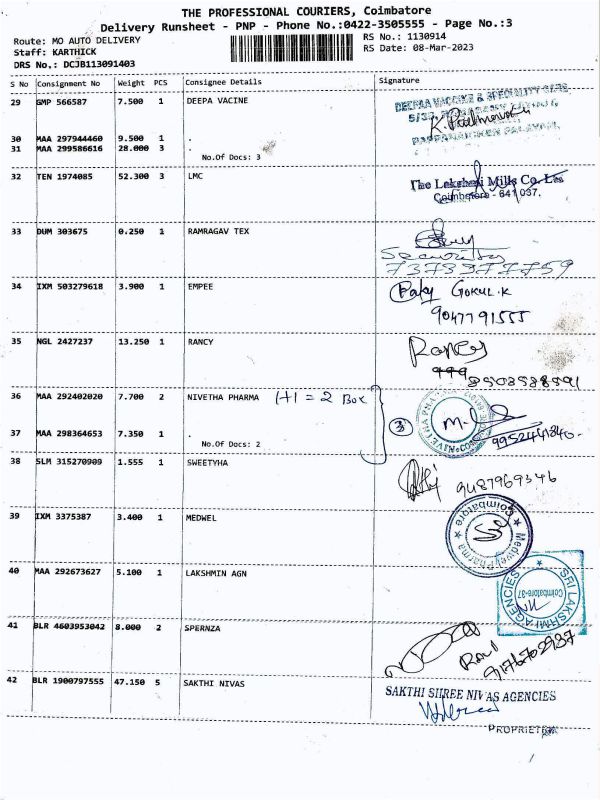 THE PROFESSIONAL COURIERS, Coimbatore
Delivery Runsheet - PNP - Phone No.:0422-3505555 - Page No.:3
Route: MO AUTO DELIVERY
Staff: KARTHICK
DRS No.: DCJB113091403
RS No.: 1130914
RS Date: 08-Mar-2023
S No Consignment No Weight PCS Consignee Details Signature
29 GMP 566587 7.500 1 DEEPA VACINE
30 MAA 297944460 9.500 1 .
31 MAA 299586616 28.000 3 .
No.Of Docs: 3
32 TEN 1974085 52.300 3 LMC
The Lakshmi Mills Co. Ltd
Coimbatore - 641 037.
33 DUM 303675 0.250 1 RAMRAGAV TEX
Security
7373977759
34 IXM 503279618 3.900 1 EMPEE
GOKUL.K
9047791555
35 NGL 2427237 13.250 1 RANCY
Rancy
36 MAA 292402020 7.700 2 NIVETHA PHARMA 1+1 = 2 Box
3
37 MAA 298364653 7.350 1 .
No.Of Docs: 2
9952441340
38 SLM 315270909 1.555 1 SWEETYHA
9487969346
39 IXM 3375387 3.400 1 MEDWEL
Medwel Pharma
Coimbatore
40 MAA 292673627 5.100 1 LAKSHMIN AGN
SRI LAKSHMI AGENCIES
Coimbatore-37
41 BLR 4603953042 8.000 2 SPERNZA
9176702937
42 BLR 1900797555 47.150 5 SAKTHI NIVAS
SAKTHI SHREE NIVAS AGENCIES
PROPRIETOR